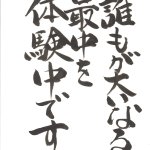 誰もが大いなる
最中を
体験中です